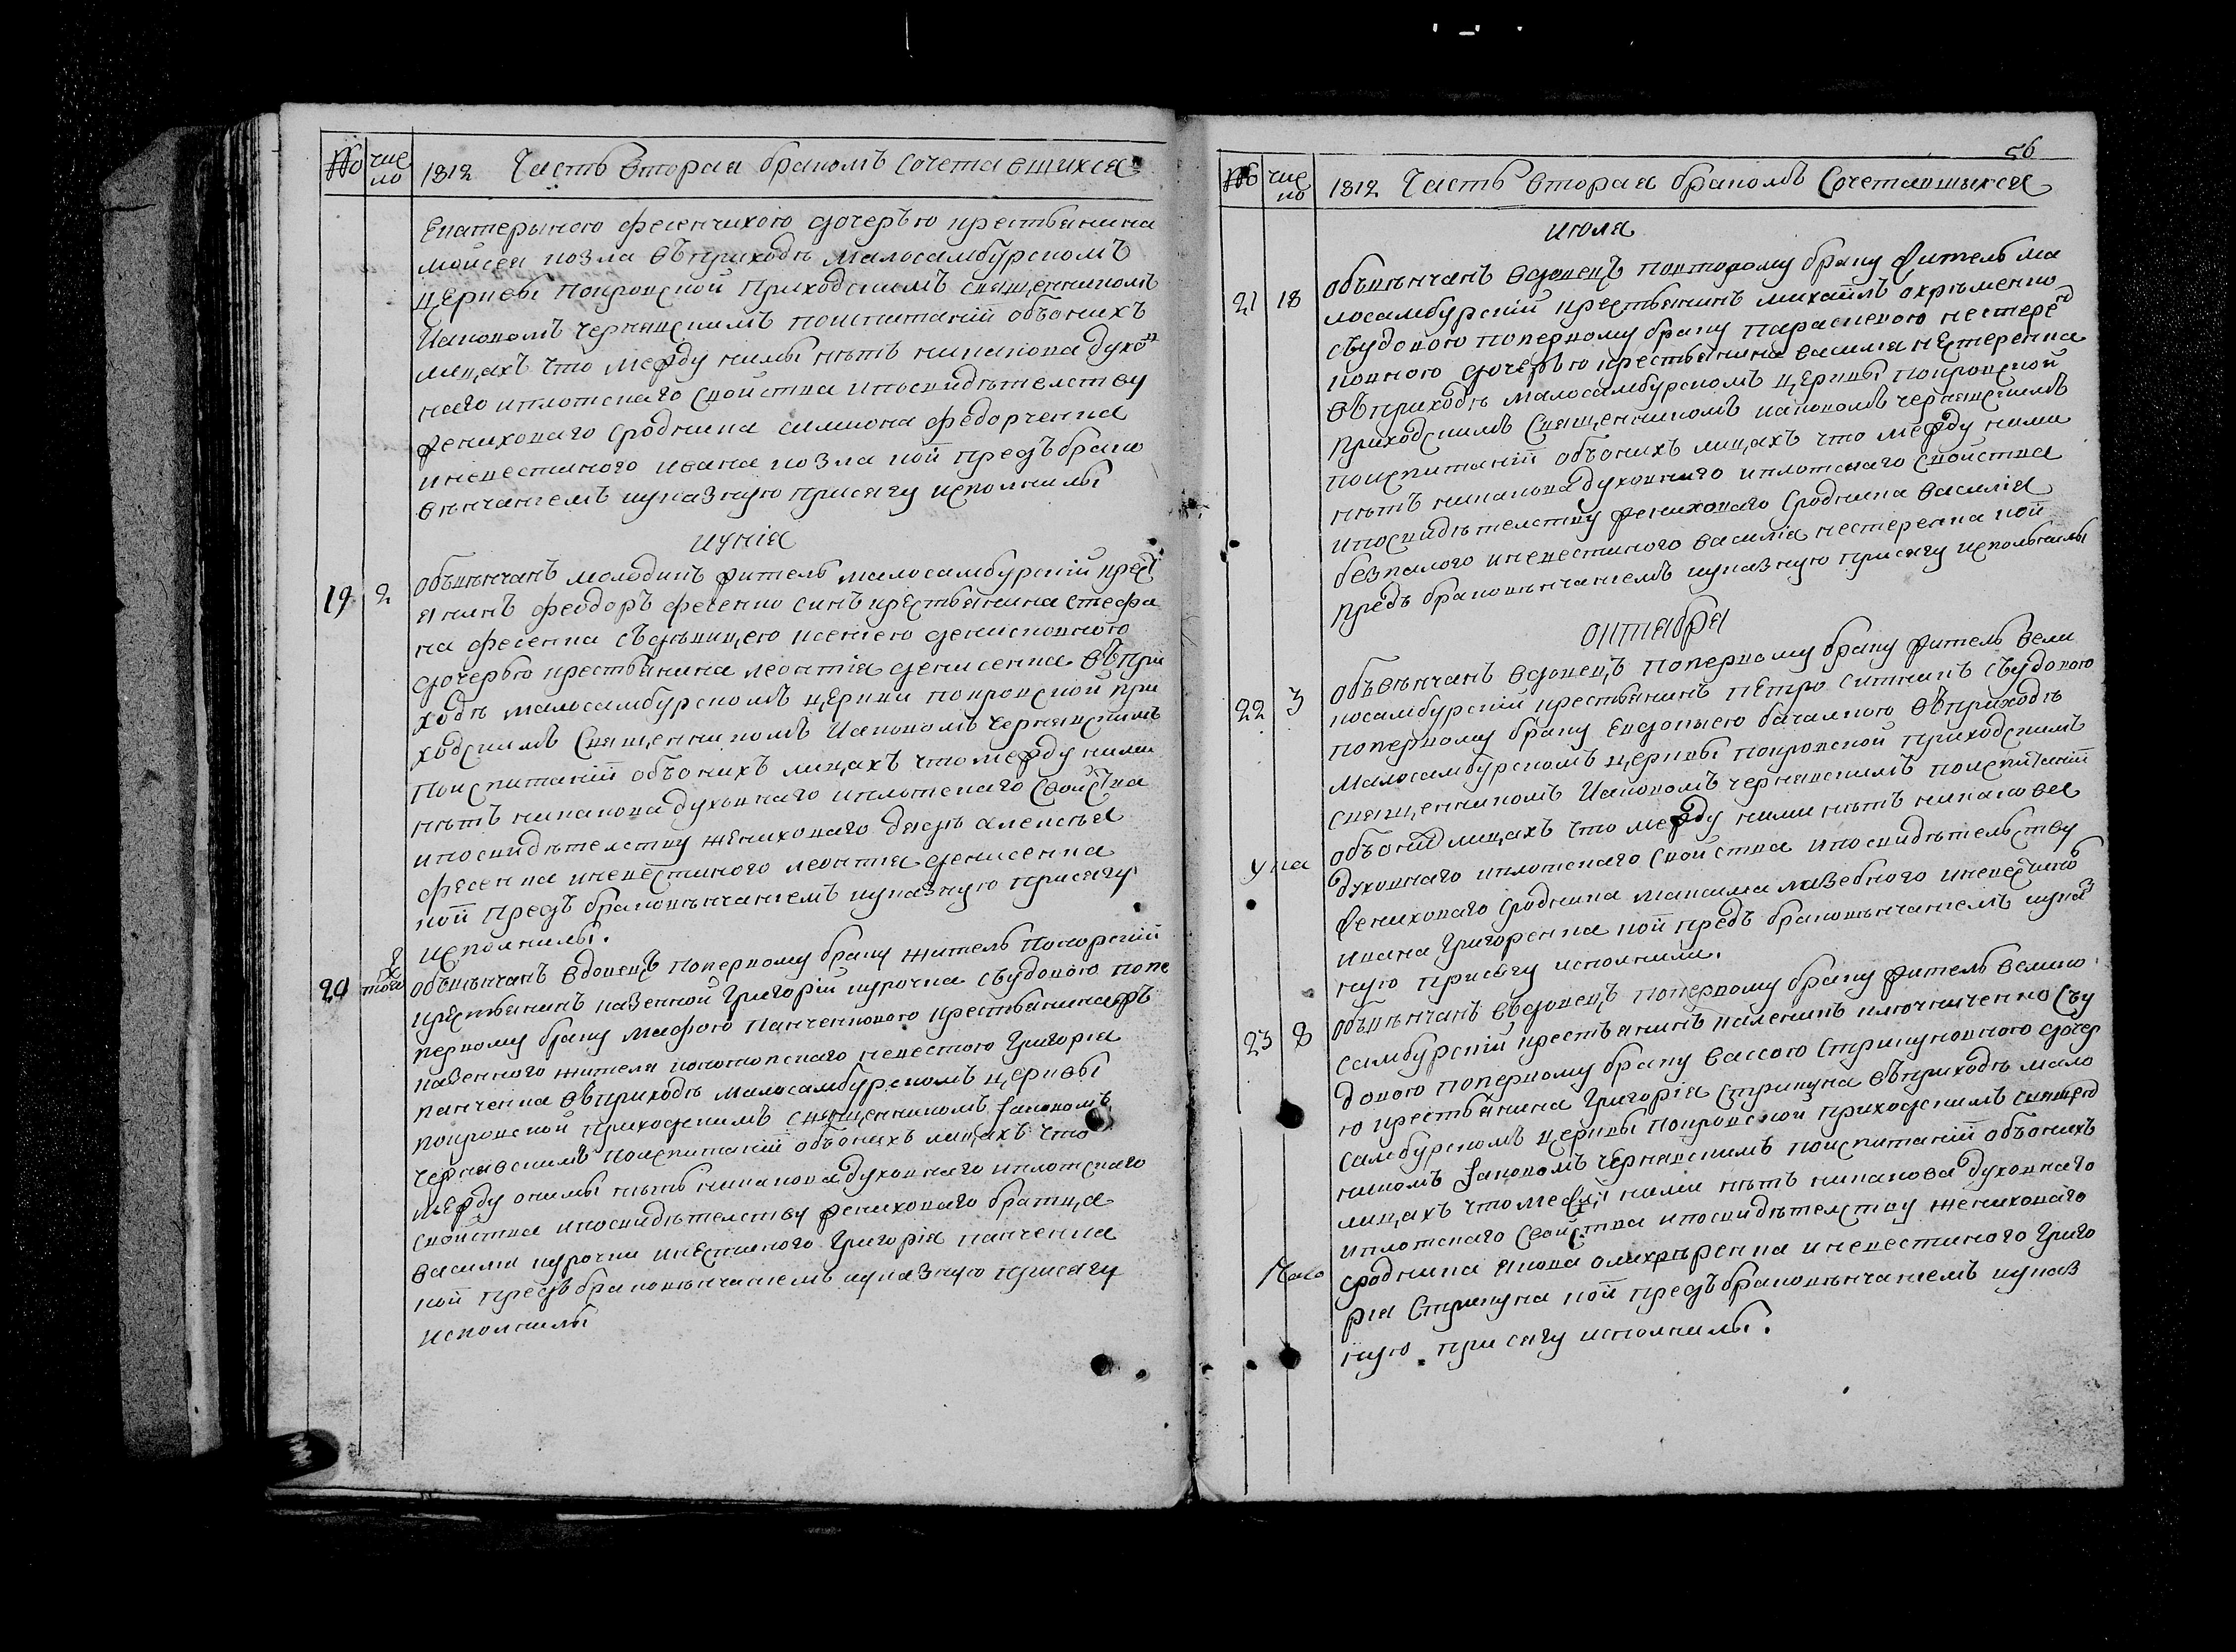 № чис ло 1812 Часть вторая бракомъ сочетавшихся
Екатерыною фесенчихою дочерью крестьянина
мойсея козла въ приходѣ малосамбурскомъ
церквы покровской приходскимъ священникомъ
Иаковомъ чернявскимъ поиспитаній объоныхъ
лицахъ что между нимы нѣтъ никакова духов
наго иплотскаго свойства ипосвидѣтелству
жениховаго сродника симиона федорченка
иневестиного ивана козла кой предъ брако
венчаніемъ иуказную присягу исполнилы
иунія
19 2 объвѣнчанъ молодикъ житель малосамбурскій крест
янинъ феодоръ фесенко синъ крестьянина стефа
на фесенка съдѣвицею ксеніею денисковною
дочерью крестьянина леонтія денисенка въ при
ходѣ малосамбурскомъ церкви покровской при
ходскимъ священникомъ Иаковомъ чернявскимъ
поиспитаній объонихъ лицахъ что между ними
нѣтъ никакова духовнаго иплотскаго свойства
ипосвидѣтелству жениховаго дядѣ алексѣя
фесенка иневестиного леонтія денисенка
кой предъ браковѣнчаніемъ иуказную присягу
исполнилы.
20 тогож объвѣнчанъ вдовецъ попервому браку житель
крестьянинъ казенной григорій курочка съудовою попе
рвому браку мафою панченковою крестьянина
казенного жителя конотопскаго невесткою григорія
панченка въ приходѣ малосамбурскомъ церквы
покровской приходскимъ священникомъ Iаковомъ
чернявскимъ поиспитаній объонихъ лицахъ что
между онимы нѣтъ никакова духовнаго иплотскаго
свойства ипосвидѣтелству жениховаго братца
василя курочки иневестиного григорія панченка
кой предъ браковѣнчаніемъ иуказную присягу
исполнилы
56
№ чис ло 1812 Часть вторая бракомъ Сочетавшыхся
июля
21 18 объвѣнчанъ вдовецъ повторому браку житель ма
лосамбурскій крестьянинъ михаилъ охрѣменко
съудовою поперному браку параскевою нестерен
ковною дочерью крестьянина василія нестеренка
въ приходѣ малосамбурскомъ церквы покровской
приходскимъ священникомъ иаковомъ чернявскимъ
поиспитаній объонихъ лицахъ что между ними
нѣтъ никакова духовнаго иплотскаго свойства
ипосвидѣтелству жениховаго сродника василія
безпалого иневестиного василія нестеренка кой
предъ браковѣнчаніемъ иуказную присягу исполнилы
октября
22 3 объвѣнчанъ вдовецъ поперному браку житель вели
косамбурскій крестьянинъ пЕтро ситникъ съудовою
поперному браку Евдокиею бачалкою въ приходѣ
малосамбурскомъ церквы покровской приходскимъ
священникомъ Иаковомъ чернявскимъ поиспитаній
объоних лицахъ что между ними нѣтъ никакова
духовнаго иплотскаго свойства ипосвидѣтельству
жениховаго сродника максима иневестино
ивана григоренка кой предъ браковѣнчаніемъ иуказ
ную присягу исполнили.
23 8 объвѣнчанъ вдовецъ поперному браку житель велико
самбурскій крестьянинъ каленикъ ключниченко съу
довою поперному браку вассою стрикуновною дочер
ю крестьянина григорія стрикуна въ приходѣ мало
самбурскомъ церквы покровской приходскимъ священ
никомъ Iаковомъ чернявскимъ поиспитаній объонихъ
лицахъ что между ними нѣтъ никакова духовнаго
иплотскаго свойства ипосвидѣтелству жениховаго
сродника якова иневестиного григо
рія стрикуна кой предъ браковѣнчаніемъ иуказ
ную присягу исполнилы.